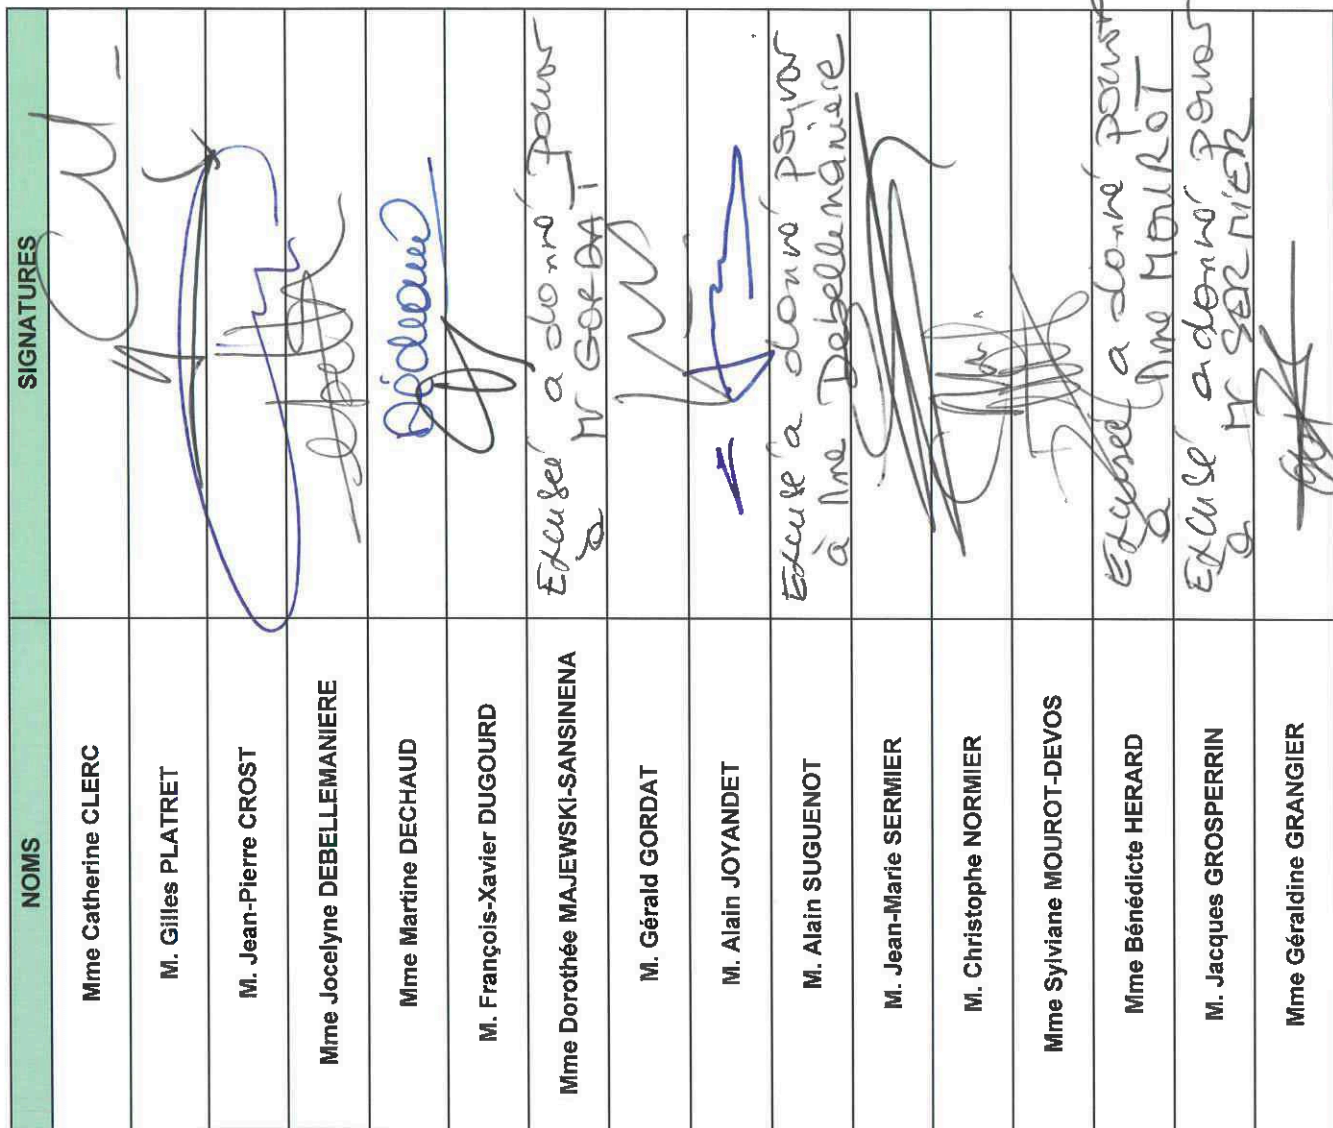 NOMS
SIGNATURES
Mme Catherine CLERC
M. Gilles PLATRET
M. Jean-Pierre CROST
Mme Jocelyne DEBELLEMANIERE
Mme Martine DECHAUD
M. François-Xavier DUGOURD
Mme Dorothée MAJEWSKI-SANSINENA
Excusée a donné pouvoir
à Mr GORDAT
M. Gérald GORDAT
M. Alain JOYANDET
M. Alain SUGUENOT
Excusé a donné pouvoir
à Mme Debellemanière
M. Jean-Marie SERMIER
M. Christophe NORMIER
Mme Sylviane MOUROT-DEVOS
Mme Bénédicte HERARD
Excusée a donné pouvoir
à Mme MOUROT
M. Jacques GROSPERRIN
Excusé a donné pouvoir
à Mr SERMIER
Mme Géraldine GRANGIER